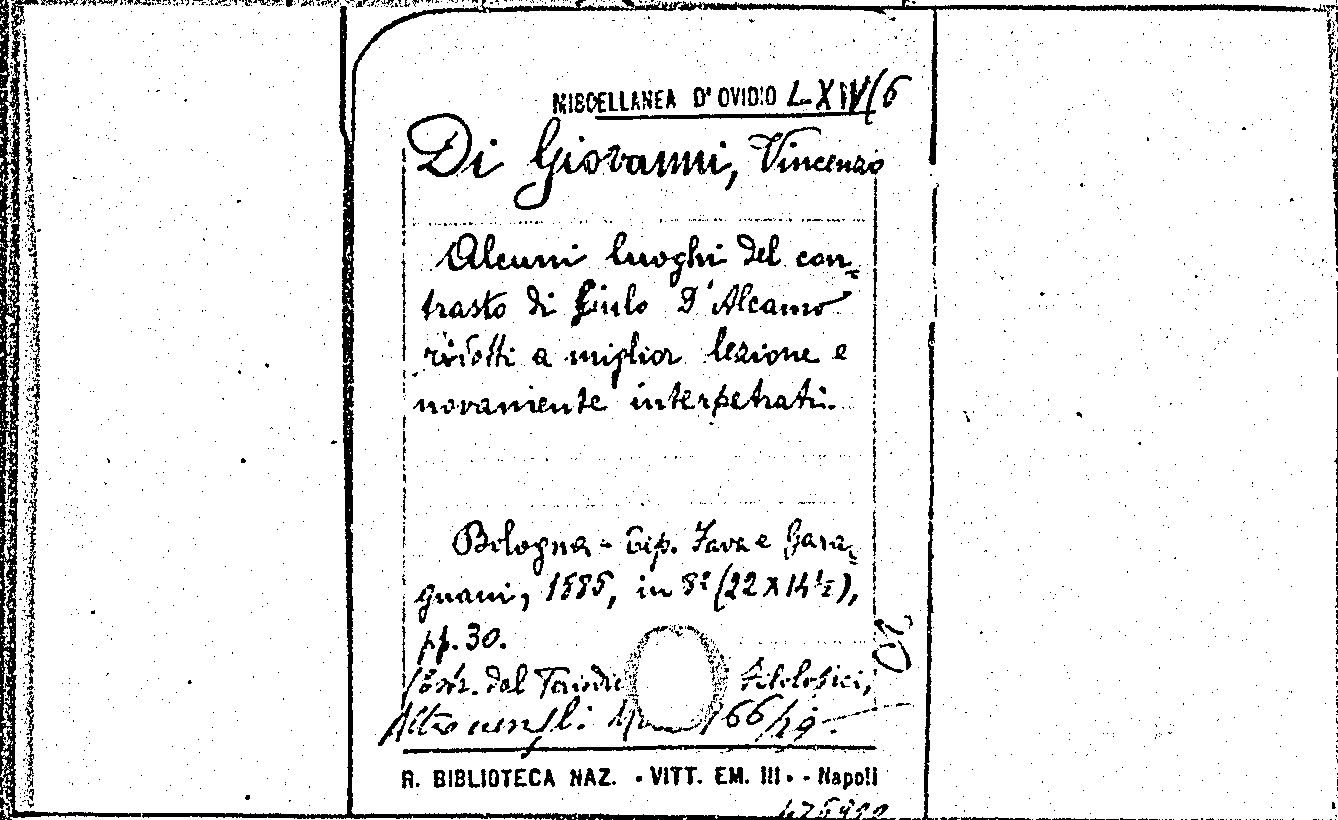 MISCELLANEA D'OVIDIO LXIV/6
Di Giovanni, Vincenzo
Alcuni luoghi del con=
trasto di Ciulo D'Alcamo
ridotti a miglior lezione e
novamente interpetrati.
Bologna - Tip. Fava e Gara=
gnani, 1885, in 8º (22 x 14½),
pp. 30.
(Estr. dal
Filologici,
R. BIBLIOTECA NAZ. - VITT. EM. III - - Napoli